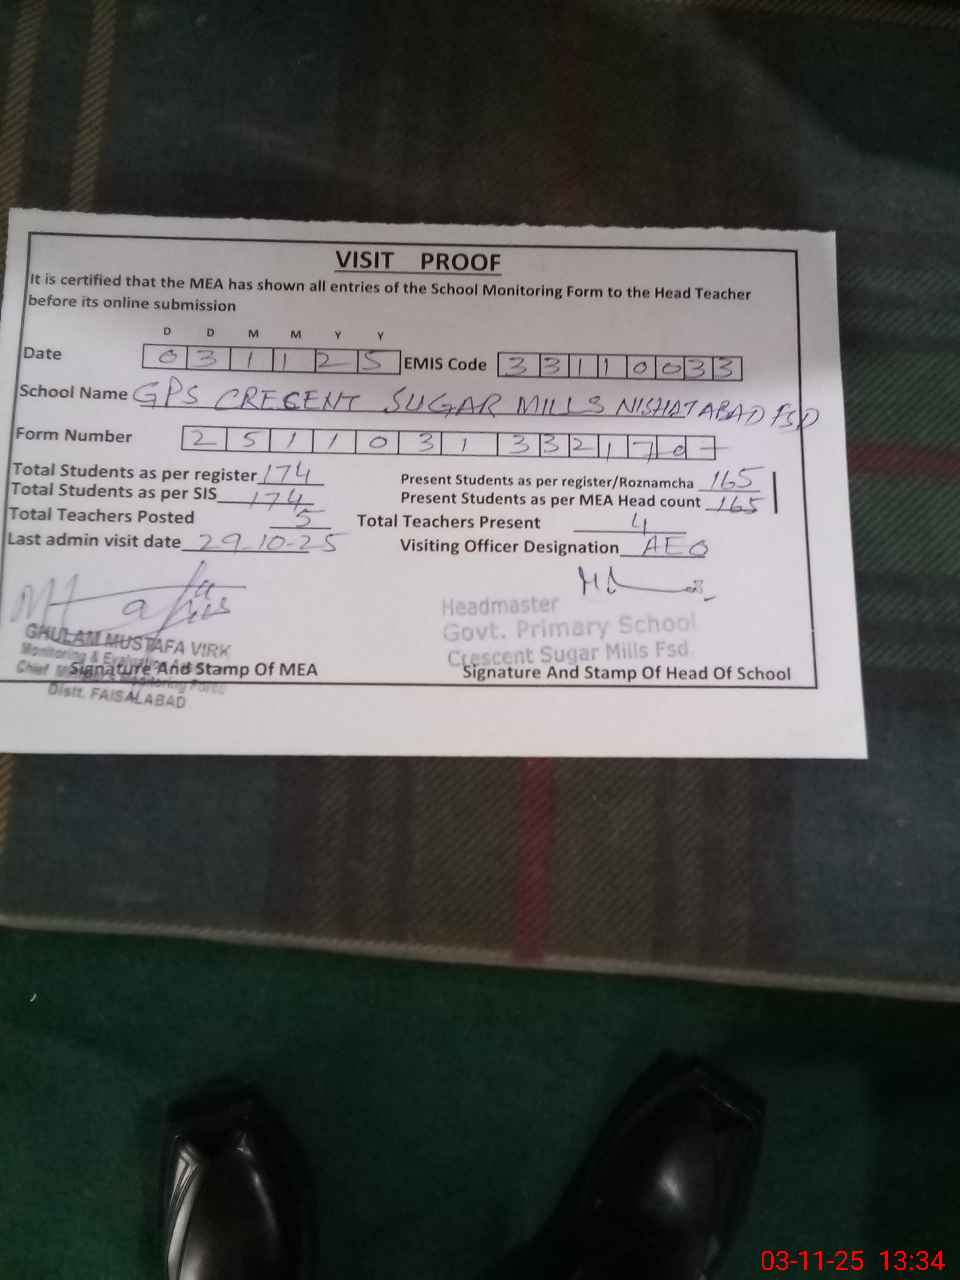 VISIT PROOF
It is certified that the MEA has shown all entries of the School Monitoring Form to the Head Teacher
before its online submission
D D M M Y Y
Date 0 3 1 1 2 5 EMIS Code 3 3 1 1 0 0 3 3
School Name GPS CRECENT SUGAR MILLS NISHATABAD FSD
Form Number 2 5 1 1 0 3 1 3 3 2 1 7 0 7
Total Students as per register 174 Present Students as per register/Roznamcha 165
Total Students as per SIS 174 Present Students as per MEA Head count 165
Total Teachers Posted 5 Total Teachers Present 4
Last admin visit date 29-10-25 Visiting Officer Designation AEO
Headmaster
Govt. Primary School
Crescent Sugar Mills Fsd.
GHULAM MUSTAFA VIRK
Monitoring &
Chief
Signature And Stamp Of MEA Signature And Stamp Of Head Of School
Distt. FAISALABAD
03-11-25 13:34